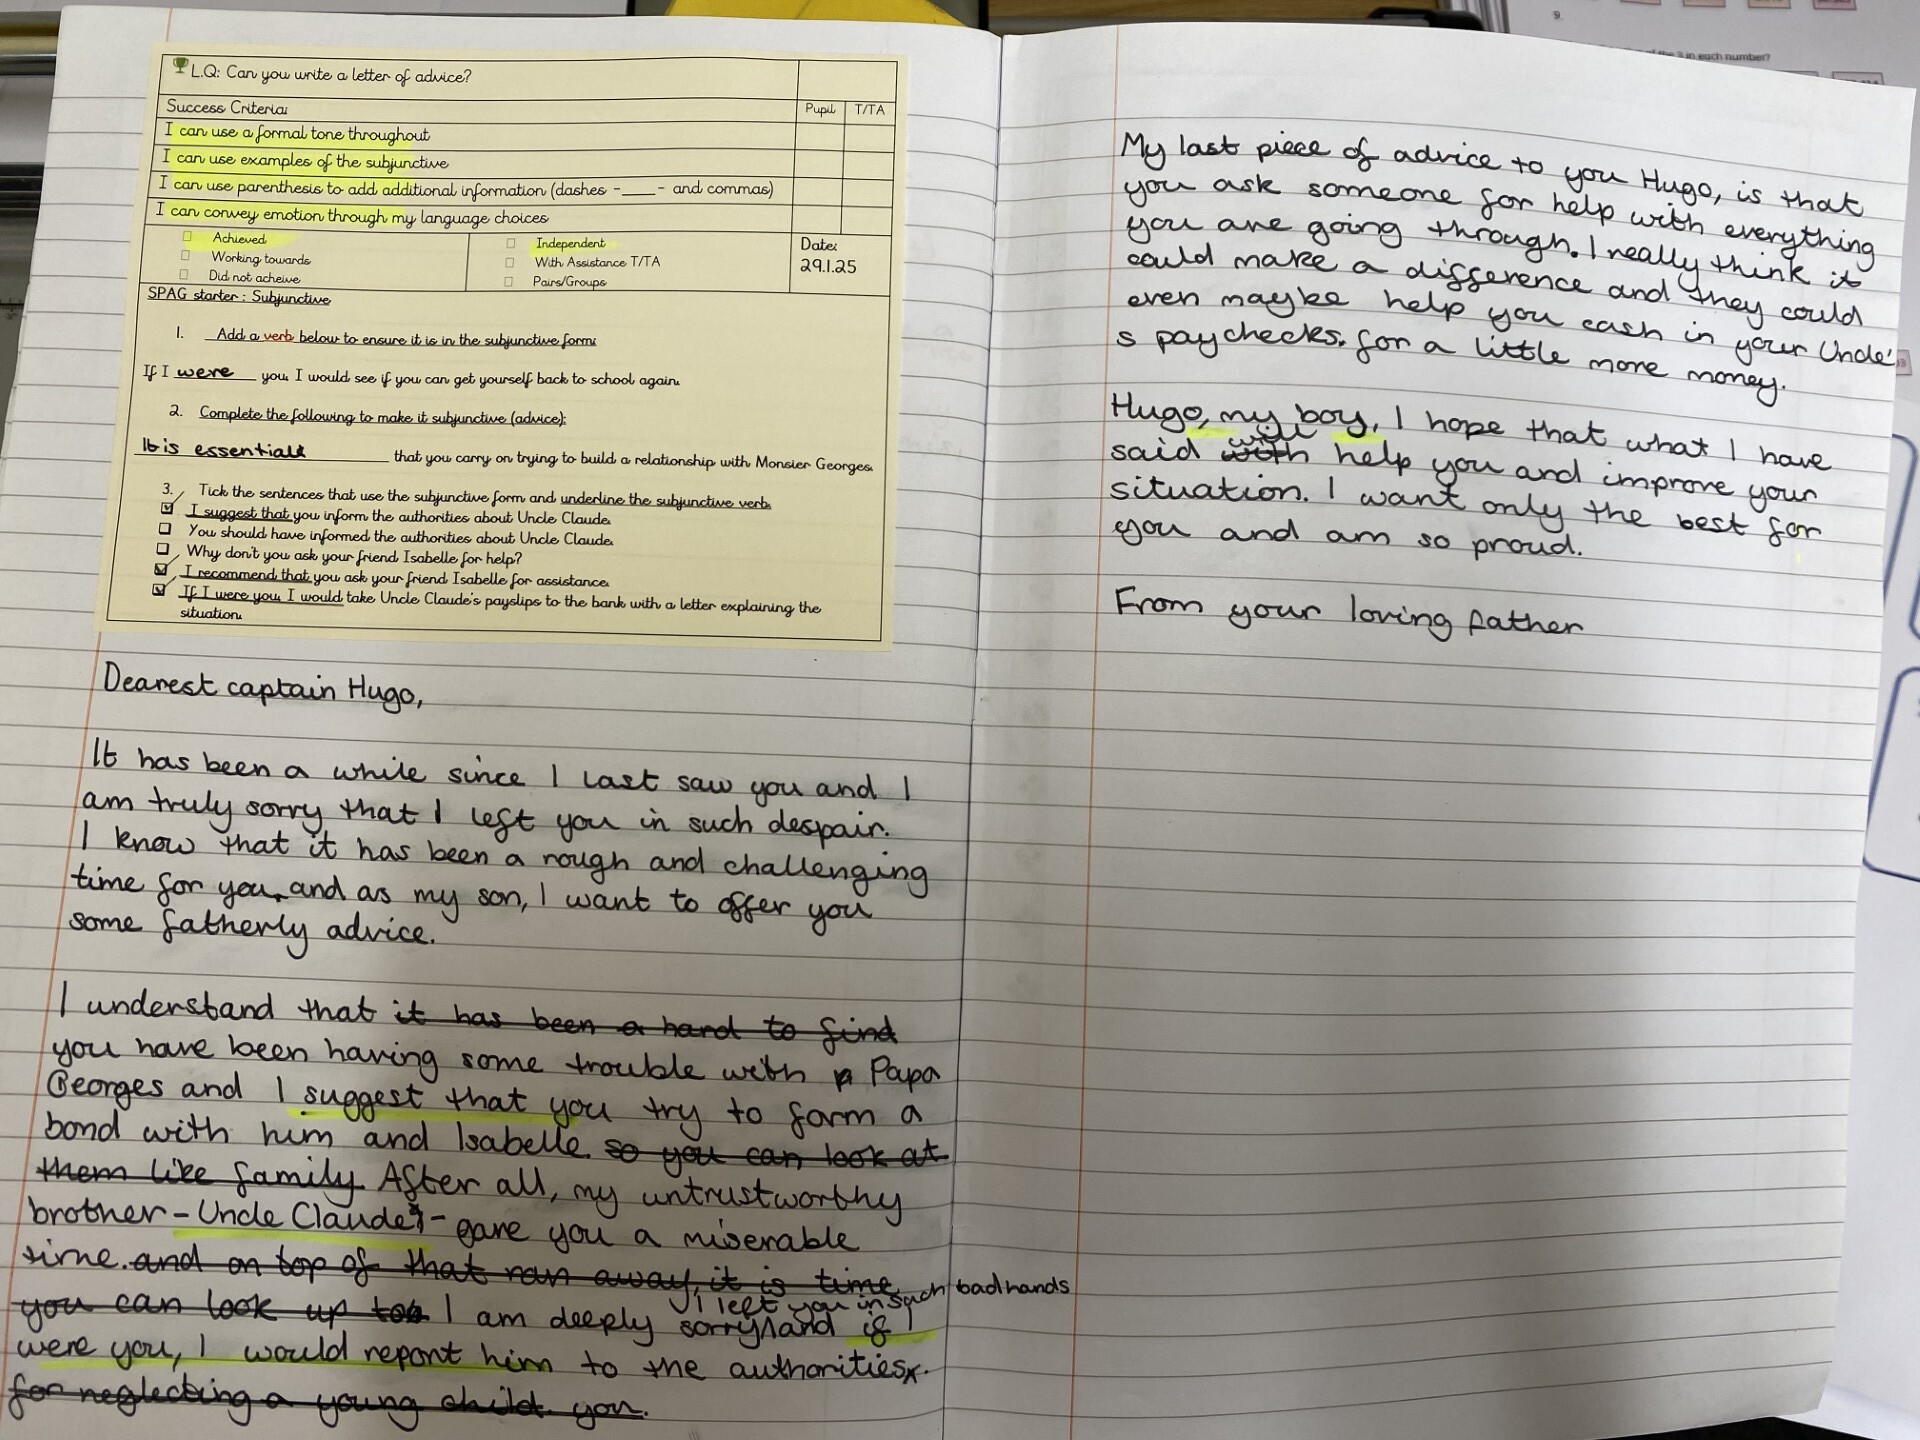 L.Q: Can you write a letter of advice?
Success Criteria:
Pupil T/TA
I can use a formal tone throughout
I can use examples of the subjunctive
I can use parenthesis to add additional information (dashes -____- and commas)
I can convey emotion through my language choices
Achieved
Working towards
Did not acheive
Independent
With Assistance T/TA
Pairs/Groups
Date:
29.1.25
SPAG starter: Subjunctive
1. Add a verb below to ensure it is in the subjunctive form:
If I were you, I would see if you can get yourself back to school again.
2. Complete the following to make it subjunctive (advice):
It is essential that you carry on trying to build a relationship with Monsier Georges.
3. Tick the sentences that use the subjunctive form and underline the subjunctive verb.
I suggest that you inform the authorities about Uncle Claude.
You should have informed the authorities about Uncle Claude.
Why don't you ask your friend Isabelle for help?
I recommend that you ask your friend Isabelle for assistance.
If I were you, I would take Uncle Claude's payslips to the bank with a letter explaining the
situation.
Dearest captain Hugo,
It has been a while since I last saw you and I
am truly sorry that I left you in such despair.
I know that it has been a rough and challenging
time for you and as my son, I want to offer you
some fatherly advice.
I understand that it has been a hard to find
you have been having some trouble with p Papa
Georges and I suggest that you try to form a
bond with him and Isabelle. so you can look at
them like family. After all, my untrustworthy
brother - Uncle Claude - gave you a miserable
time. and on top of that ran away, it is time
you can look up too I am deeply sorry I left you in such bad hands and if I
were you, I would report him to the authorities.
for neglecting a young child. you.
My last piece of advice to you Hugo, is that
you ask someone for help with everything
you are going through. I really think it
could make a difference and they could
even maybe help you cash in your Uncle'
s paychecks. for a little more money.
Hugo, my boy, I hope that what I have
said with will help you and improve your
situation. I want only the best for
you and am so proud.
From your loving father
9.
in each number?